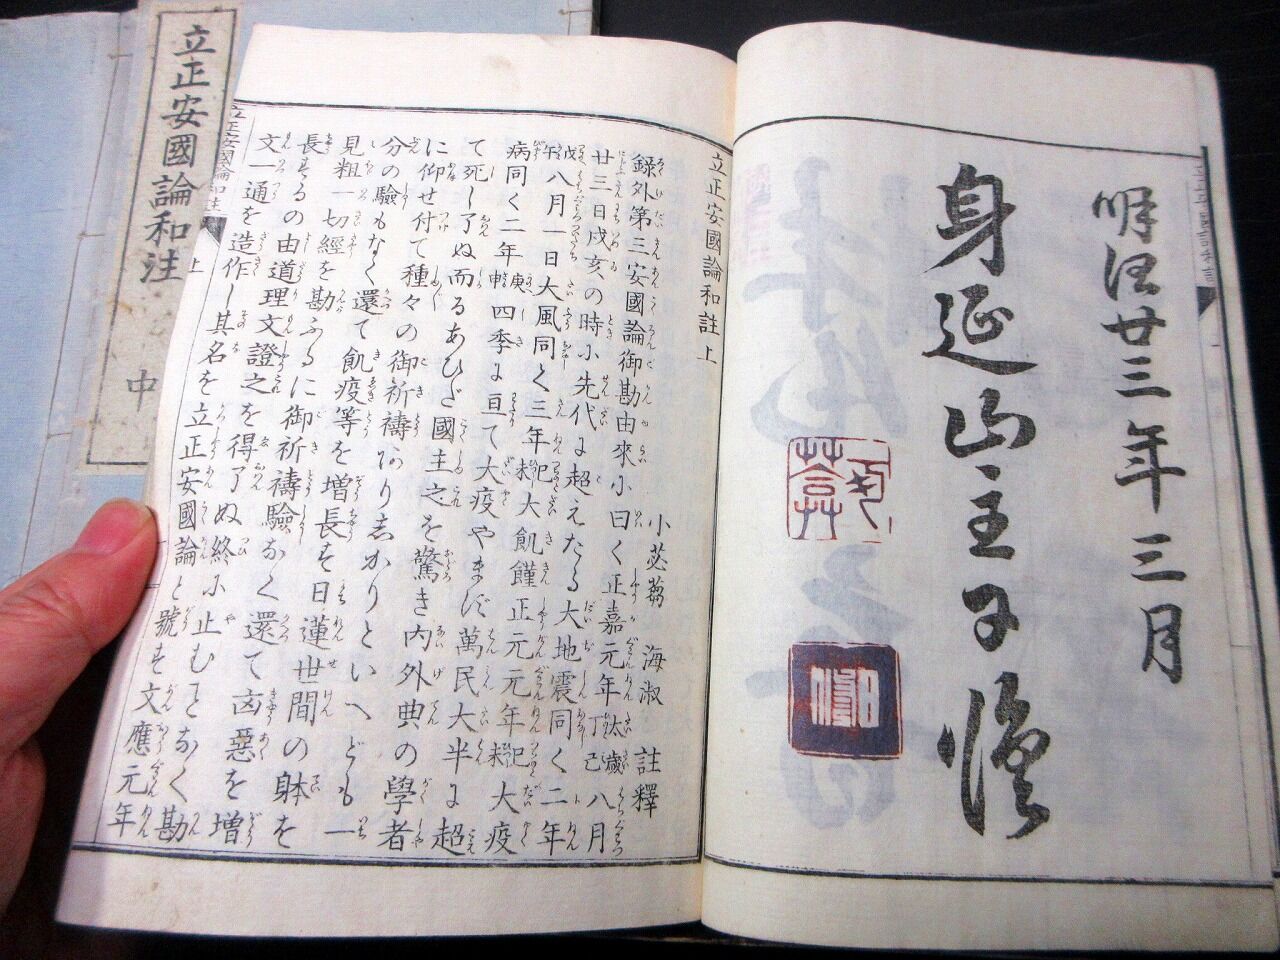 明治廿三年三月
身延山主日修
立正安國論和註 上
小苾蒭 海淑 註釋
錄外第三安國論御勘由來小曰く正嘉元年太歲丁巳八月
廿三日戌亥の時小先代に超えたる大地震同く二年
戊午八月一日大風同く三年己未大飢饉正元元年己未大疫
病同く二年庚申四季に亘て大疫やまず萬民大半に超
て死し了ぬ而るあひだ國主之を驚き内外典の學者
に仰せ付て種々の御祈禱ありしかりといへども一
分の驗もなく還て飢疫等を增長す日蓮世間の躰を
見粗一切經を勘ふるに御祈禱驗なく還て凶惡を增
長するの由道理文證之を得了ぬ終小止むことなく勘
文一通を造作し其名を立正安國論と號す文應元年
立正安國論和註
上
立正安國論和注
中